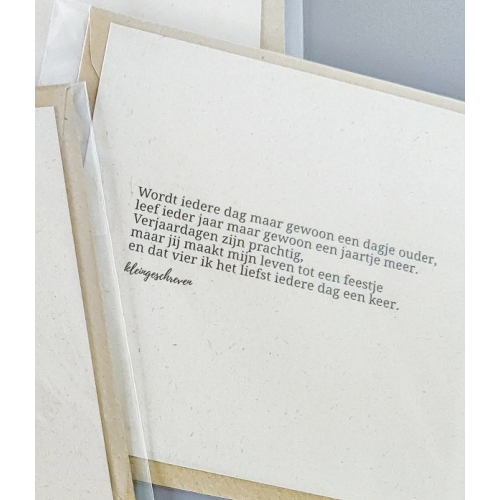 Wordt iedere dag maar gewoon een dagje ouder,
leef ieder jaar maar gewoon een jaartje meer.
Verjaardagen zijn prachtig,
maar jij maakt mijn leven tot een feestje
en dat vier ik het liefst iedere dag een keer.
kleingeschreven